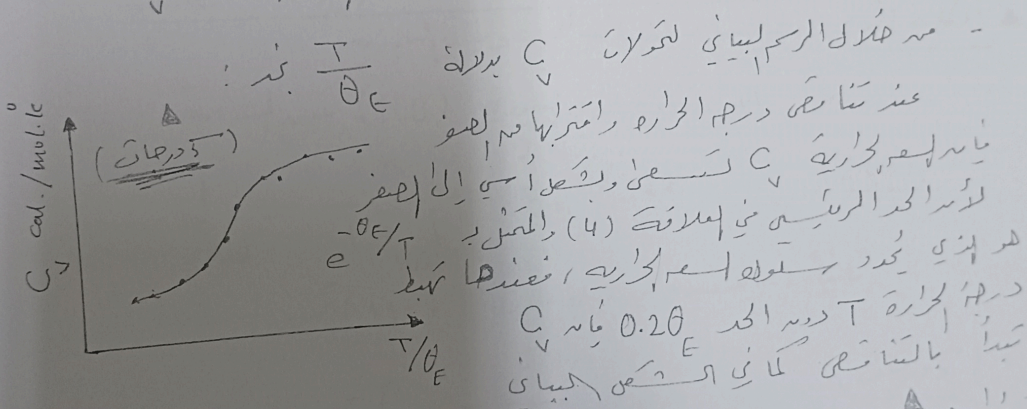 - من خلال الرسم البياني لتحولات Cv بدلالة T/θE نجد :
عند تناقص درجة الحرارة واقترابها من الصفر
فإن السعة الحرارية Cv تسعى وبشكل أسي إلى الصفر
لأن الحد الرئيسي في العلاقة (4) والمتمثل بـ e^-θE/T
هو الذي يحدد سلوك السعة الحرارية ، فعندما تهبط
درجة الحرارة T دون الحد 0.2θE فإن Cv
تبدأ بالتناقص كما في الشكل البياني
(5 درجات)
Cv cal./mol.k°
T/θE